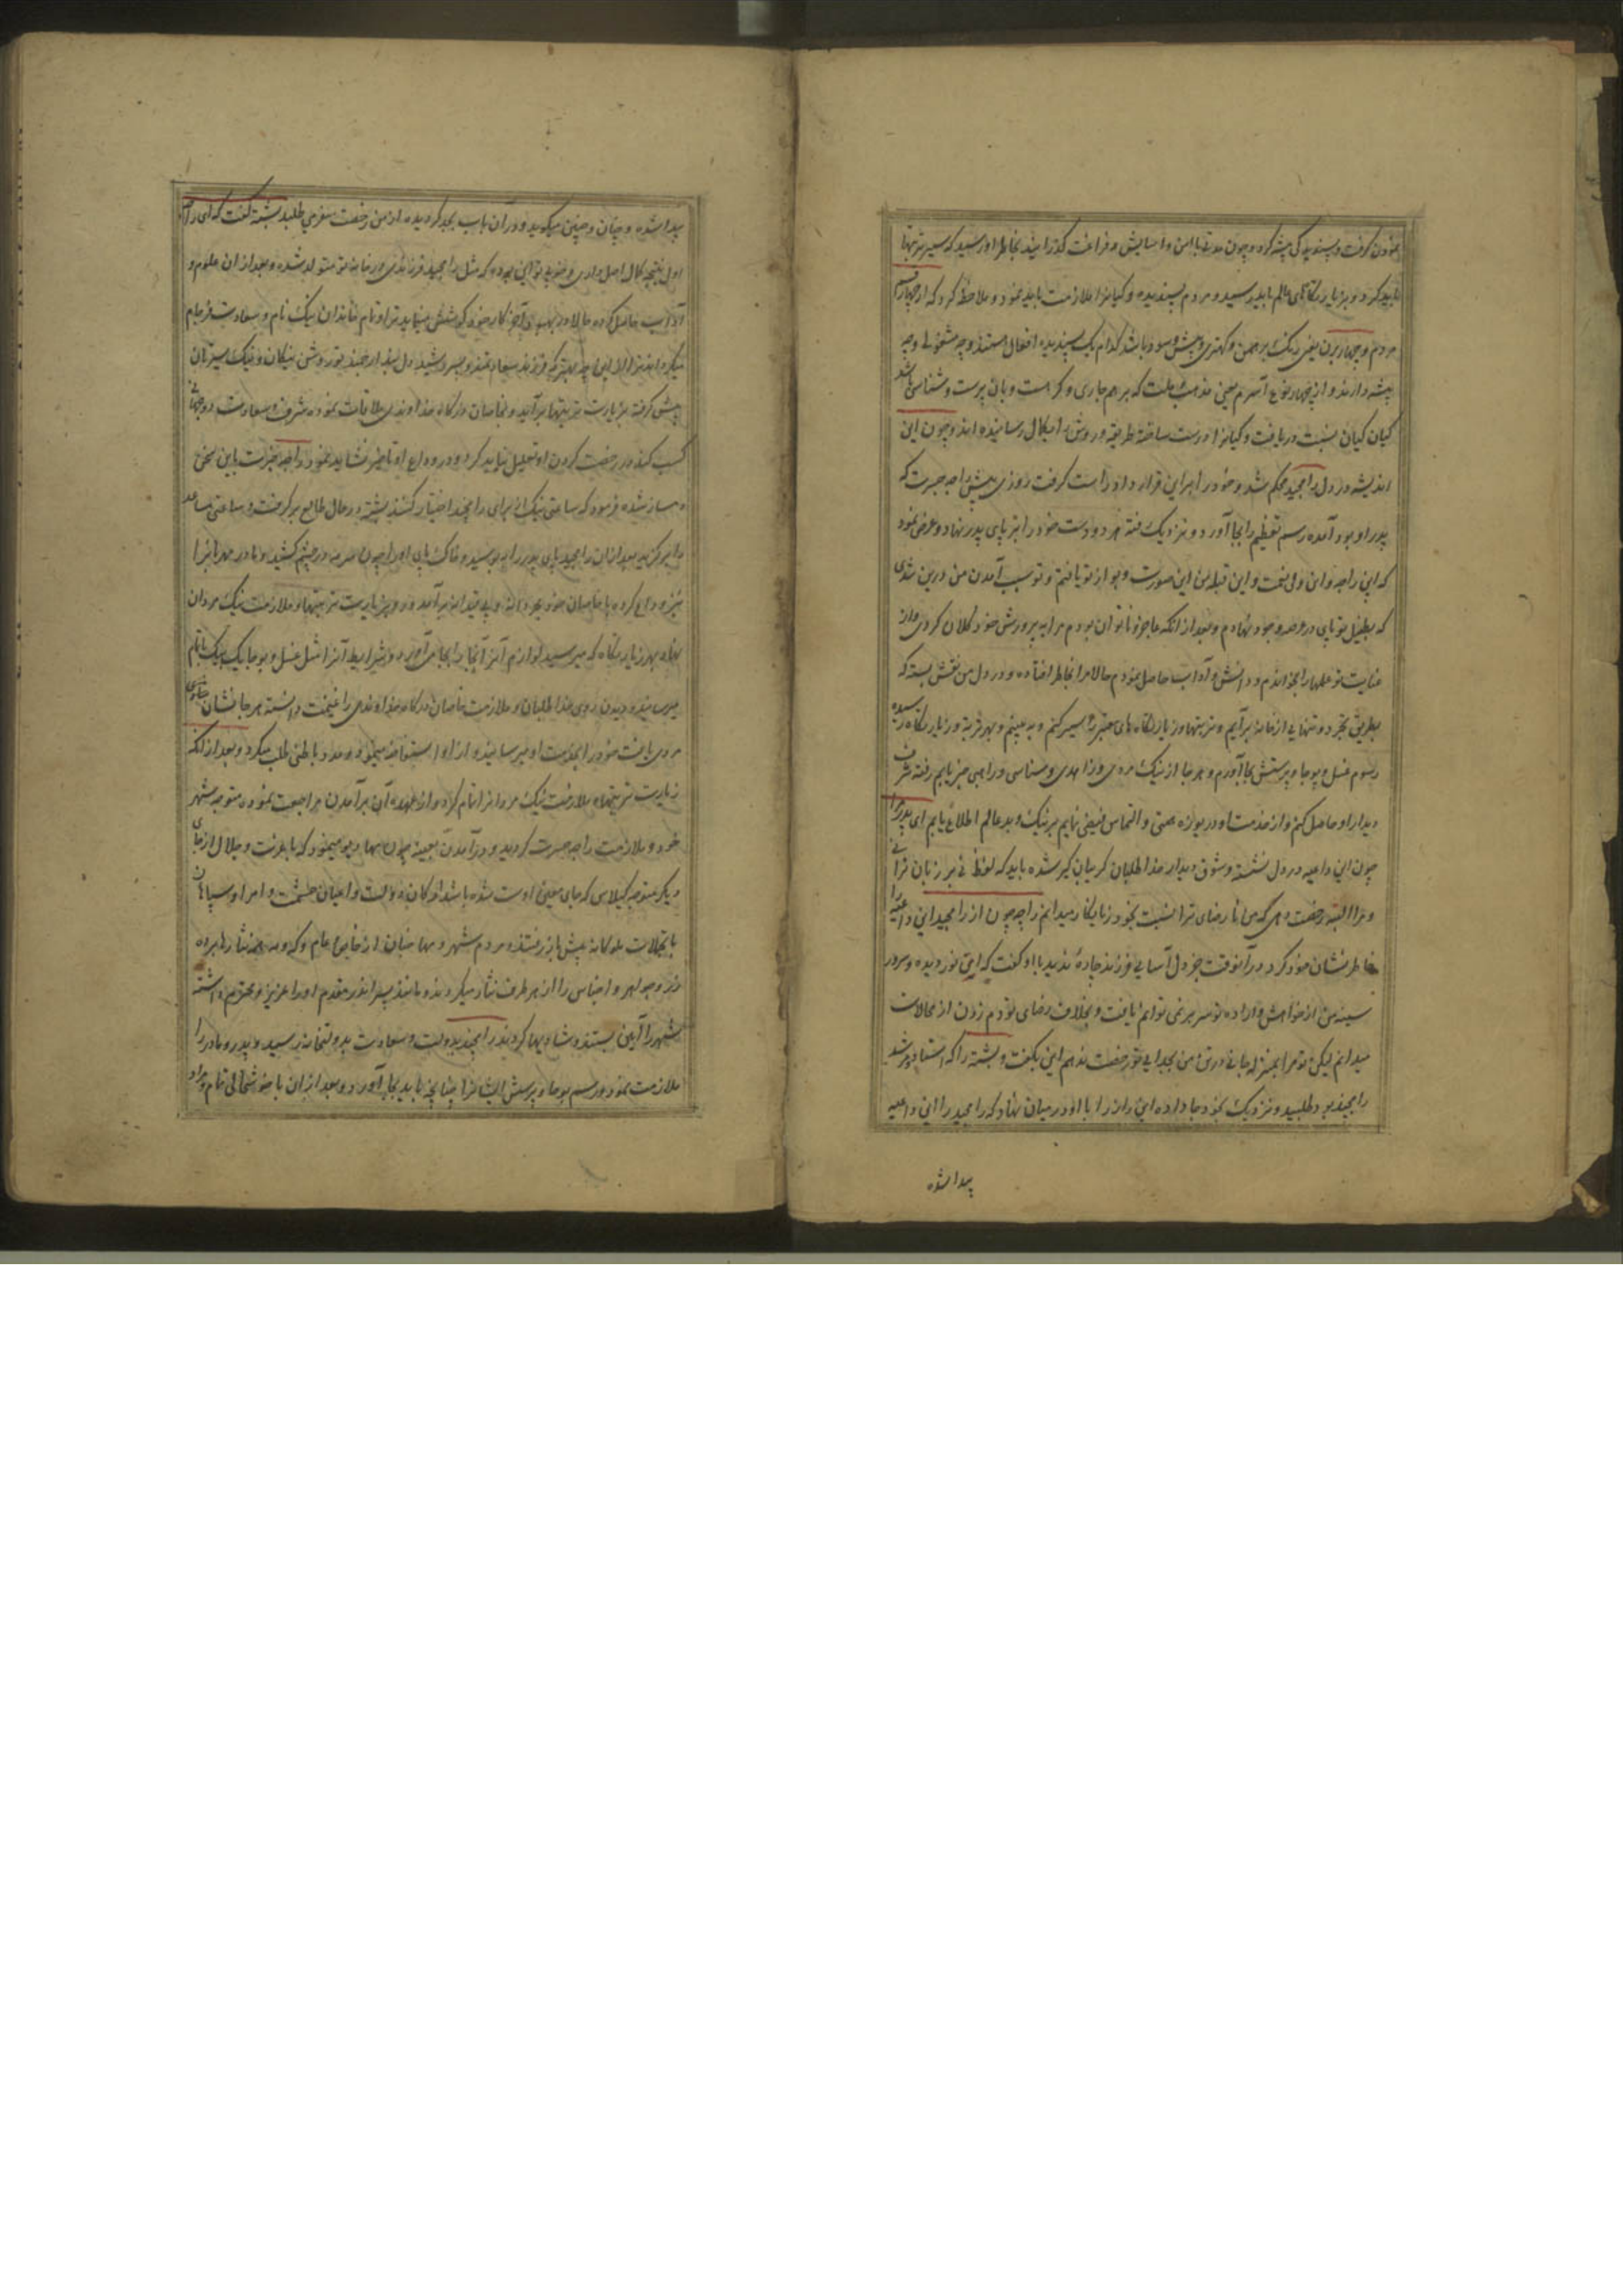 نمودن گرفت و پسندیدگی پیشه کرد و چون مدتی با امن و آسایش و فراغت گذرانید بخاطر او رسید که سیر تیرتهها
باید کرد و بزیارتگاههای عالم باید رسید و مردم پسندیده و گیانیرا ملازمت باید نمود و ملاحظه کرد که از چهار قسم
مردم و چهار برن یعنی برهمن و کهتری و بیش و سودر باشد کدام یک پسندیده افعال هستند و چه مشغولی و چه
پیشه دارند و از چهار نوع آسرم یعنی مذهب و ملت که برهمچاری و گرهست و بان پرست و سناسی باشد
کیان کیان بنسبت دریافت و گیانرا درست ساخته طریقه و روش را بکمال رسانیده اند و چون این
اندیشه در دل رامچند محکم شد و خود را بر این قرار داد راست گرفت روزی پیش راجه جسرت که
پدر او بود آمده رسم تعظیم را بجا آورد و نزدیک رفته هر دو دست خود را بر پای پدر نهاد و عرض نمود
که این راجه و این ولی نعمت و این قبله من این صورت وجود از تو یافتم و تو سبب آمدن من درین شدی
که بطفیل تو پای در عرصه وجود نهادم و بعد از آنکه عاجز و ناتوان بودم مرا به پرورش خود کلان کردی و از
عنایت تو علمها را بخواندم و دانش و آداب حاصل نمودم حالا مرا بخاطر افتاده و در دل من نقش بسته که
بطریق تجرد و تنهایی از خانه برآیم و تیرتهها و زیارتگاه های متبرکه را سیر کنم و به بینم و بهر تیرتهه و زیارتگاه رسیده
رسوم غسل و پوجا و پرستش بجا آورم و هر جا از نیک مردی و زاهدی و سناسی و راهبی خبر یابم رفته شرف
دیدار او حاصل کنم و از خدمت او دریوزه همتی و التماس فیضی نمایم بر نیک و بد عالم اطلاع یابم ای پدر مرا
چون این داعیه در دل نشسته و شوق دیدار خدا طلبان گریبان گیر شده باید که لفظ نی بر زبان نرانی
و مرا البته رخصت دهی که من نا رضای ترا نسبت بخود زیانکار میدانم راجه چون از رامچند این داعیه را
خاطر نشان خود کرد در آنوقت جز دل آسایی فرزند چاره ندید با او گفت که ای نور دیده و سرور
سینه من از خواهش و اراده تو سر بر نمی توانم تافت و بخلاف رضای تو دم زدن از محالات
میدانم لیکن تو مرا بمنزله جانی در تن من بجدایی تو رخصت ندهم این بگفت و بشسته را که استاد و مرشد
رامچند بود طلبید و نزدیک بخود جا داده این راز را با او در میان نهاد که رامچند را این داعیه
پیدا شده
پیدا شده و چنان و چنین میگوید و در آن باب بجد گردیده از من رخصت سفر می طلبد بشسته گفت که ای راجه
اول نتیجه کمال اصل دادی و خوبی تو این بوده که مثل رامچند فرزندی در خانه تو متولد شده و بعد از آن علوم و
آداب حاصل کرده حالا در بهبودی آخر کار خود کوشش مینماید ترا و تمام خاندان نیک نام و سعادت فرجام
میگرداند ترا ازین چه بهتر که فرزند سعادتمند و بسر رشید دل بند ارجمند تو روش نیکان و نیک سیرتان
پیش گرفته بزیارت تیرتهها برآید و بخاصان درگاه خداوندی ملاقات نموده شرف و سعادت دو جهان
کسب کند در رخصت کردن او تعلل نباید کرد و در وداع او تاخیر نشاید نمود راجه جسرت باین سخن
دمساز شده فرمود که ساعتی نیک برای رامچند اختیار کنند بشسته در حال طالع بر گرفت و ساعتی مساعد
را برگزید بعد از آن رامچند پای پدر را به بوسید و خاک پای او را چون سرمه در چشم کشید و مادر مهربانرا
نیز وداع کرده با خاصان خود مجردانه و بی قیدانه برآمد و رو بزیارت تیرتهها و ملازمت نیک مردان
نهاد بهر زیارتگاه که میرسید لوازم آنرا آنجا بجا می آورد و شرایط آنرا مثل غسل و پوجا یک بیک باتمام
میرسانید و دیدن روی خدا طلبان و ملازمت خاصان درگاه خداوندی را غنیمت دانسته هر جا نشان خدا جوی
مردی یافت خود را بخدمت او میرسانید و از او استفاضه مینمود و مدد باطنی طلب میکرد و بعد از آنکه
زیارت تیرتهها و ملازمت نیک مردانرا تمام کرد و از عهده آن برآمدن مراجعت نموده متوجه شهر
خود و ملازمت راجه جسرت گردید و درآمدن بعینه چون مهادیو مینمود که با عزت و جلال از جای
دیگر متوجه کیلاس که جای معین اوست شده باشد ارکان دولت و اعیان حشمت و امرا و سپاهیان
با تجملات ملوکانه پیش باز رفتند و مردم شهر و مهاجنان از خاص و عام و که و مه همه نثارها برده
زر و جواهر و اجناس را از هر طرف نثار میکردند و مانند پسر اندر مقدم او را عزیز و محترم داشته
شهر را آیین بستند و شادیها کردند رامچند بدولت و سعادت بدولتخانه رسید و پدر و مادر را
ملازمت نمود و رسم پوجا و پرستش ایشانرا چنانچه باید بجا آورد و بعد از آن با خوشحالی تمام